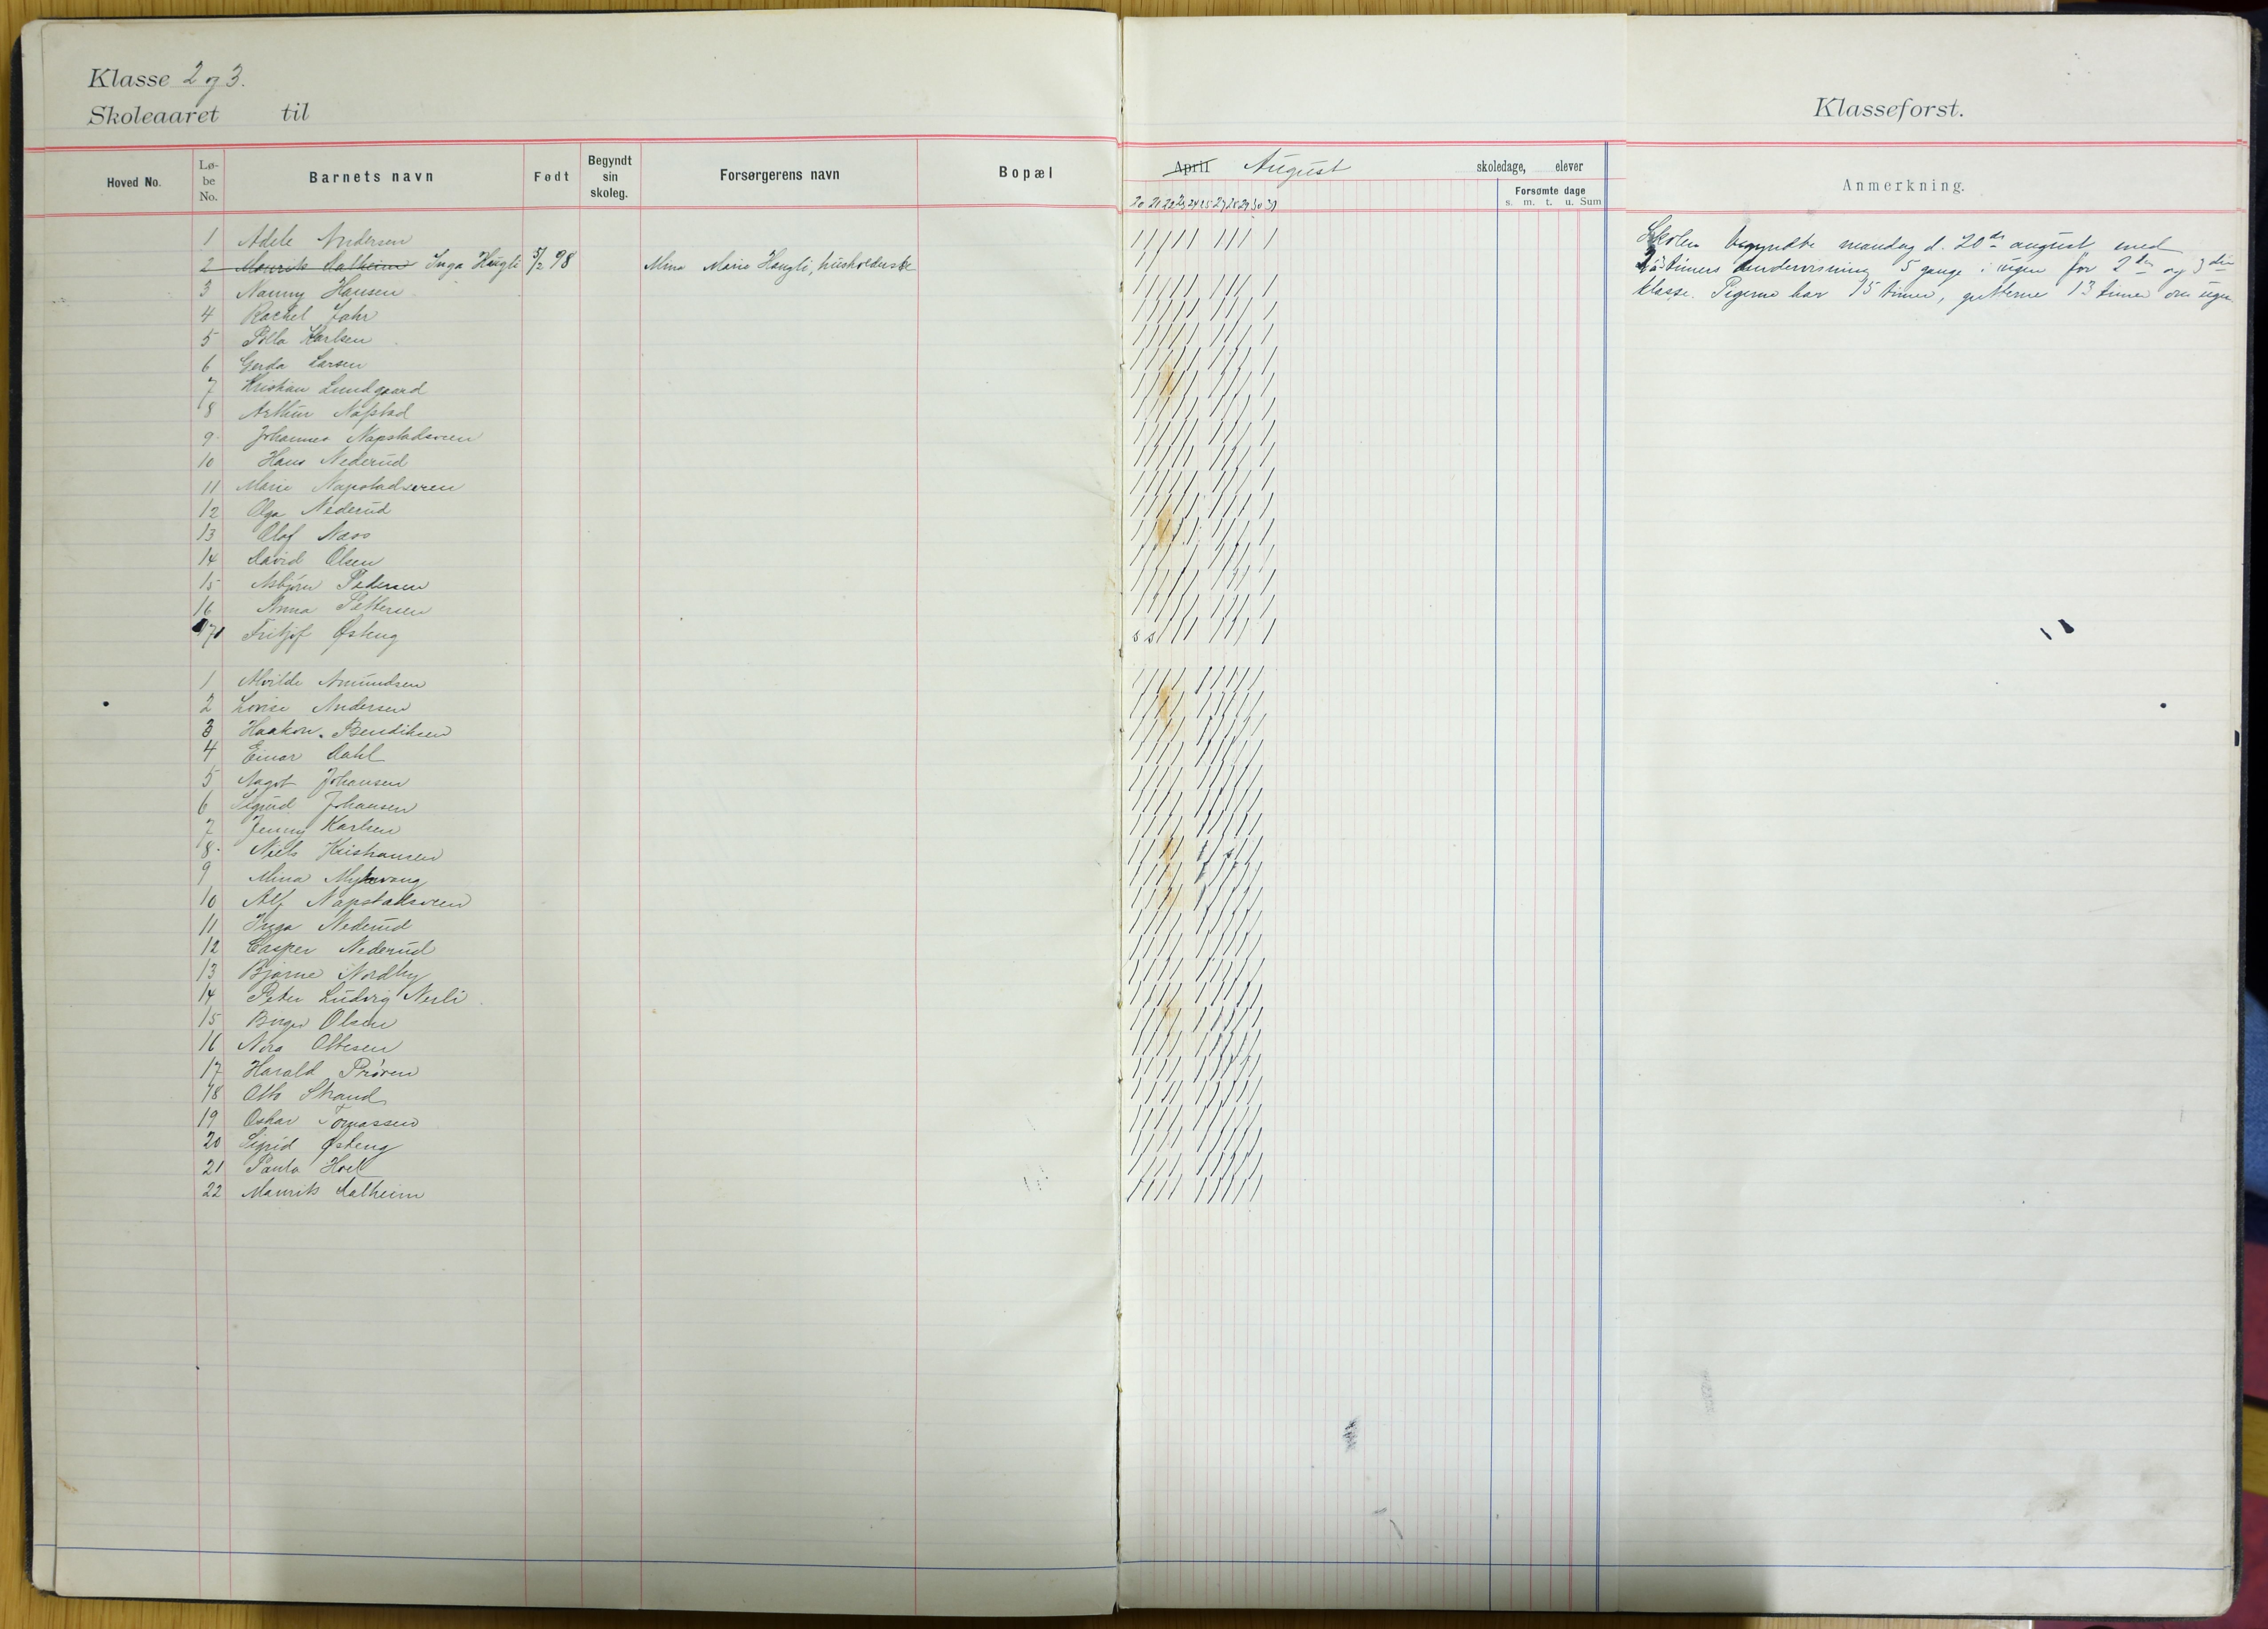 Klasse 2 og 3.
Skoleaaret til
Klasseforst.
Hoved No.
Lø-
be
No.
Barnets navn
Født
Begyndt
sin
skoleg.
Forsørgerens navn
Bopæl
April August skoledage, elever
Forsømte dage
s. m. t. u. Sum
20 21 22 23 24 25 27 28 29 30 31
Anmerkning.
1 Adele Andersen
2 Maurits Dalheim Inga Haugli 5/2 98 Mina Marie Haugli, husholderske
3 Nanny Hansen
4 Rachel Jahr
5 Karlsen
6 Gerda Larsen
7 Kristian Lundgaard
8 Arthur Napstad
9 Johannes Napstadsveen
10 Hans Nederud
11 Marie Napstadsveen
12 Olga Nederud
13 Olaf Næss
14 David Olsen
15 Asbjørn Pedersen
16 Anna Pettersen
17 Fritjof Østeng
s s
1 Alvilde Amundsen
2 Lovise Andersen
3 Haakon Bendiksen
4 Einar Dahl
5 Aagot Johansen
6 Sigrid Johansen
7 Jenny Karlsen
8 Niels Kristiansen
9 Mina
10 Alf Napstadsveen
11 Inga Nederud
12 Casper Nederud
13 Bjarne Nordby
14 Peter Ludvig Nerli
15 Birger Olsen
16 Nora Ottesen
17 Harald Prøven
18 Otto Strand
19 Oskar Tomassen
20 Sigrid Østeng
21 Paula Hoel
22 Maurits Dalheim
Skolen begyndte mandag d. 20de august med
3 timers undervisning 5 gange i ugen for 2den og 3die
klasse. Pigerne har 15 timer, gutterne 13 timer om ugen